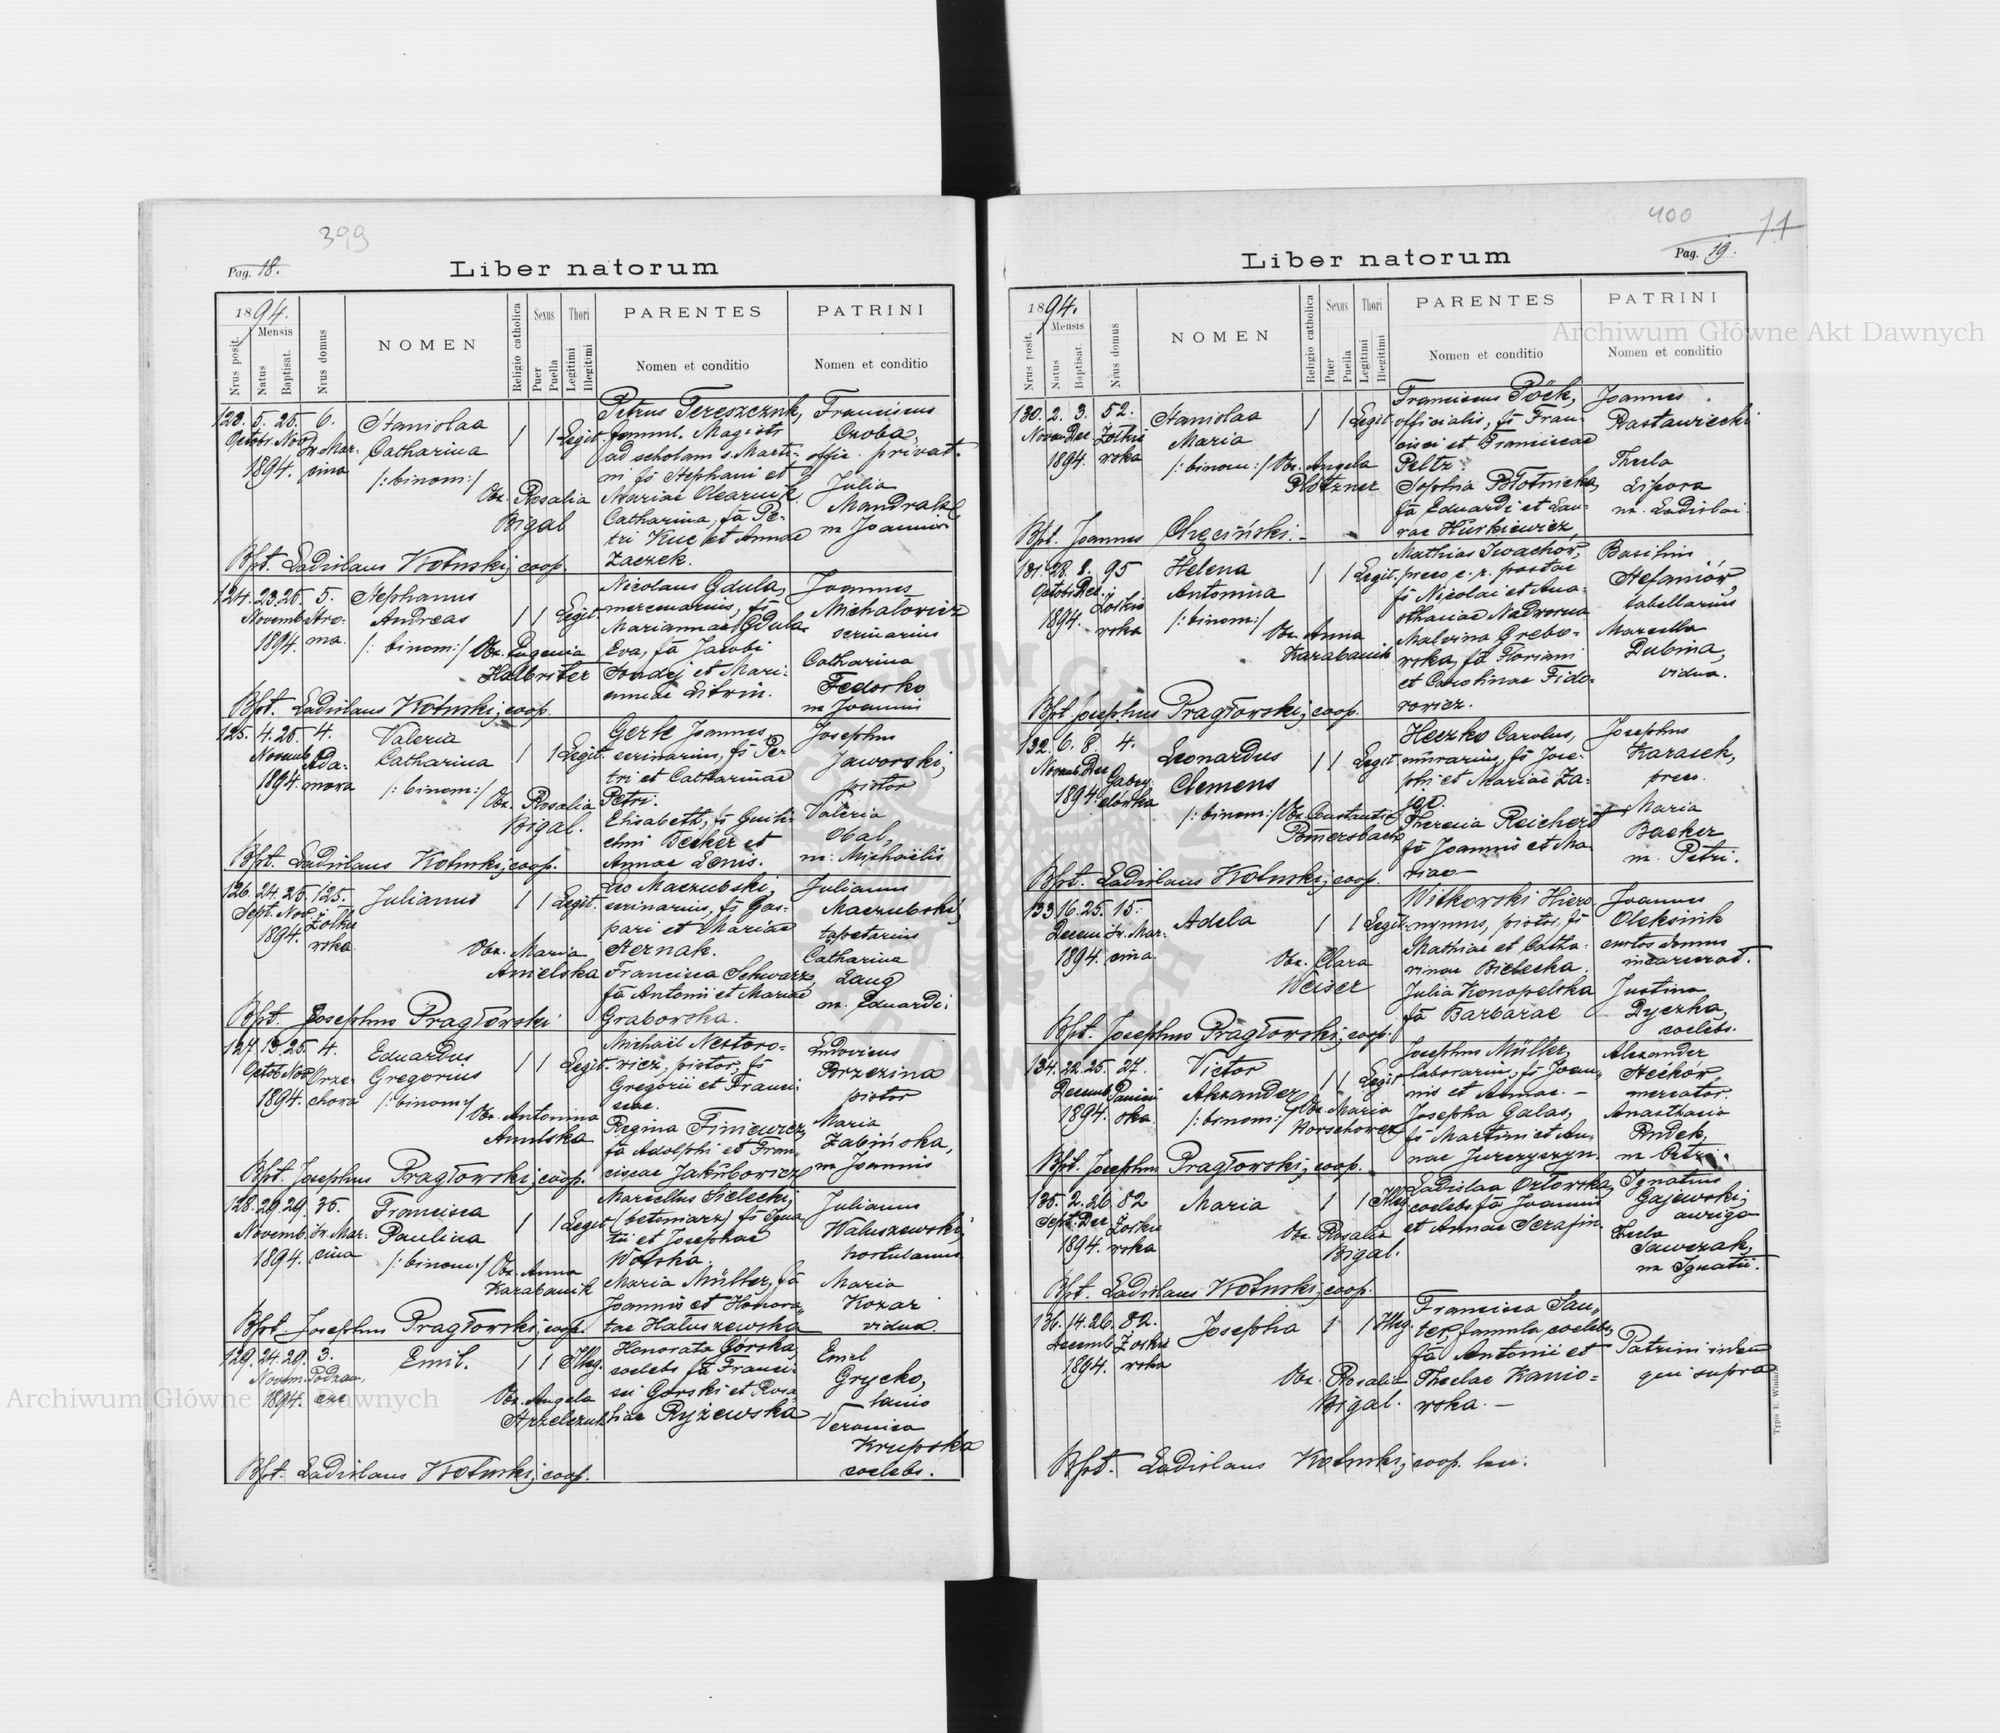 399
Pag. 18.
Liber natorum
1894.
Mensis
Nrus posit.
Natus
Baptisat.
Nrus domus
NOMEN
Religio catholica
Sexus
Puer
Puella
Thori
Legitimi
Illegitimi
PARENTES
Nomen et conditio
PATRINI
Nomen et conditio
123. 5. 25. 6.
Octobr. Nov.
1894.
Stanislaa
Catharina
/: binom:/
Obx. Rosalia
Bigal
1 1 Legit.
Petrus Tereszczuk,
famul. Magistr
ad scholam s. Marti-
ni fs Stephani et
Mariae Olearnik
Catharina, fa Pe-
tri Kuc et Annae
Zaczek.
Franciscus
Czoba,
offic. privat.
Julia
m Joannis
Bpt. Ladislaus Koturski, coop.
124. 23. 25. 5.
Novemb.
1894.
Stephanus
Andreas
/: binom:/ Obx. Eugenia
Halbriter
1 1 Legit.
Nicolaus Gdula,
mercenarius, fs
Mariannae Gdula
Eva, fa Jacobi
et Mari-
annae Litwin.
Joannes
Michalowicz
scrinarius
Catharina
Fedorko
m Joannis
Bpt. Ladislaus Koturski, coop.
125. 4. 25. 4.
Novemb.
1894.
Valeria
Catharina
/: binom:/ Obx. Rosalia
Bigal.
1 1 Legit.
Gerk Joannes,
scrinarius, fs Pe-
tri et Catharinae
Petri.
Elisabeth, fs Guili-
elmi Becker et
Annae
Josephus
Jaworski,
pistor
Valeria
Obal,
m. Michaëlis
Bpt. Ladislaus Koturski, coop.
126. 24. 25. 125.
Sept. Nov.
1894.
Żółkie
wska
Julianus
Obx. Maria
Amielska
1 1 Legit.
Leo Maczubski,
scrinarius, fs Gas-
pari et Mariae
Sternak.
Francisca Schwarz,
fa Antonii et Mariae
Grabowska.
Julianus
Maczubski,
tapetarius
Catharina
Laug
m. Eduardi.
Bpt. Josephus Pragłowski
127. 15. 25. 4.
Octob. Nov.
1894.
Orze-
chowa
Eduardus
Gregorius
/: binom:/
Obx. Antonina
Amilska
1 1 Legit.
Michaël Nestoro-
wicz, pistor, fs
Gregorii et Franci
scae.
Regina Finiewicz
fa Adolphi et Fran-
ciscae Jakubowicz
Ludovicus
Brzezina
pistor
Maria
Zabińska,
m Joannis
Bpt. Josephus Pragłowski, coop.
128. 29. 29. 35.
Novemb. św. Mar-
1894. cina
Francisca
Paulina
/: binom:/ Obx. Anna
Karabanik
1 1 Legit
Marcellus Sielecki,
(betoniarz) fs Igna
tii et Josephae
Wolska.
Maria Müller, fa
Joannis et Honora-
tae Haluszewska
Julianus
Waluszewski,
hortulanus
Maria
Kozar
vidua.
Bpt. Josephus Pragłowski, coop.
129. 24. 29. 3.
Novem.
1894.
Emil.
Obx. Angela
Strzelczuk
1 1 Illeg.
Honorata Górska,
coelebs fa Franci-
sci Gorski et Rosa
liae Ryżewska
Emil
Grycko,
lanio
Veronica
Krupska
coelebs.
Bpt. Ladislaus Koturski, coop.
400
11
Pag. 19.
Liber natorum
1894.
Mensis
Nrus posit.
Natus
Baptisat.
Nrus domus
NOMEN
Religio catholica
Sexus
Puer
Puella
Thori
Legitimi
Illegitimi
PARENTES
Nomen et conditio
PATRINI
Nomen et conditio
130. 2. 3. 52.
Novem. Dec.
1894.
Żółkie
wska
Stanislaa
Maria
/: binom:/ Obx. Angela
Plotzner
1 1 Legit
Franciscus Pöck,
officialis, fs Fran-
cisci et Franciscae
Peltz.
Sophia Błotnicka,
fa Eduardi et Lau-
rae Hurkiewicz
Joannes
Rastawiecki
Thecla
Lipora
m. Ladislai.
Bpt. Joannes Chęciński.
131. 28. 8. 95
Octob. Dec.
1894.
Żółkie
wska
Helena
Antonina
/: binom:/
Obx. Anna
Karabanik
1 1 Legit.
Mathias Iwachów,
praeco c. r. postae
fs Nicolai et Ana-
sthasiae Nadworna
Malvina Grebo-
wska, fa Floriani
et Carolinae Fido-
rowicz.
Basilius
Stefaniów,
tabellarius
Marcella
Dubina,
vidua.
Bpt. Josephus Pragłowski, coop.
132. 6. 8. 4.
Novemb. Dec
1894.
Gabry-
elówka
Leonardus
Clemens
/: binom:/ Obx. Constantia
Pomersbach
1 1 Legit
Heczko Carolus,
murarius, fs Jose-
phi et Mariae Za-
jąc.
Theresia Reichert
fa Joannis et Ma-
riae
Josephus
Karasek,
Maria
Backer
m. Petri.
Bpt. Ladislaus Koturski, coop.
133. 16. 25. 15.
Decem św. Mar-
1894. cina.
Adela
Obx. Clara
Weiser
1 1 Legit.
Witkowski Hiero
nymus, pistor, fs
Mathiae et Catha-
rinae Bielecka.
Julia Konopelska
fa Barbarae
Joannes
Oleksiuk
custos domus
incarcerat.
Justina
Dyczka,
coelebs.
Bpt. Josephus Pragłowski, coop.
134. 22. 25. 27.
Decemb.
1894.
Panień
ska
Victor
Alexander
/: binom:/ Obx. Maria
Borschowez
1 1 Legit
Josephus Müller,
laborarius, fs Joan-
nis et Annae.
Josepha Galas,
fs Martini et An-
nae Jurczyszyn.
Alexander
Steckow
mercator.
Anasthasia
Rudek,
m Petri.
Bpt. Josephus Pragłowski, coop.
135. 2. 26. 82
Sept. Dec.
1894.
Żółkie
wska
Maria
Obx. Rosalia
Bigal.
1 1 Illeg.
Ladislaa Orłowska,
coelebs fa Joannis
et Annae Serafin.
Ignatius
Gajewski,
auriga
Thecla
Sawczak,
m Ignatii.
Bpt. Ladislaus Koturski, coop.
136. 14. 26. 82.
Decemb.
1894.
Żółkie
wska
Josepha
Obx. Rosalia
Bigal.
1 1 Illeg.
Francisca Sau-
ter, famula coelebs,
fa Antonii et
Theclae Kanio-
wska.
Patrini iidem
qui supra
Bpt. Ladislaus Koturski, coop.
Archiwum Główne Akt Dawnych
Archiwum Główne Akt Dawnych